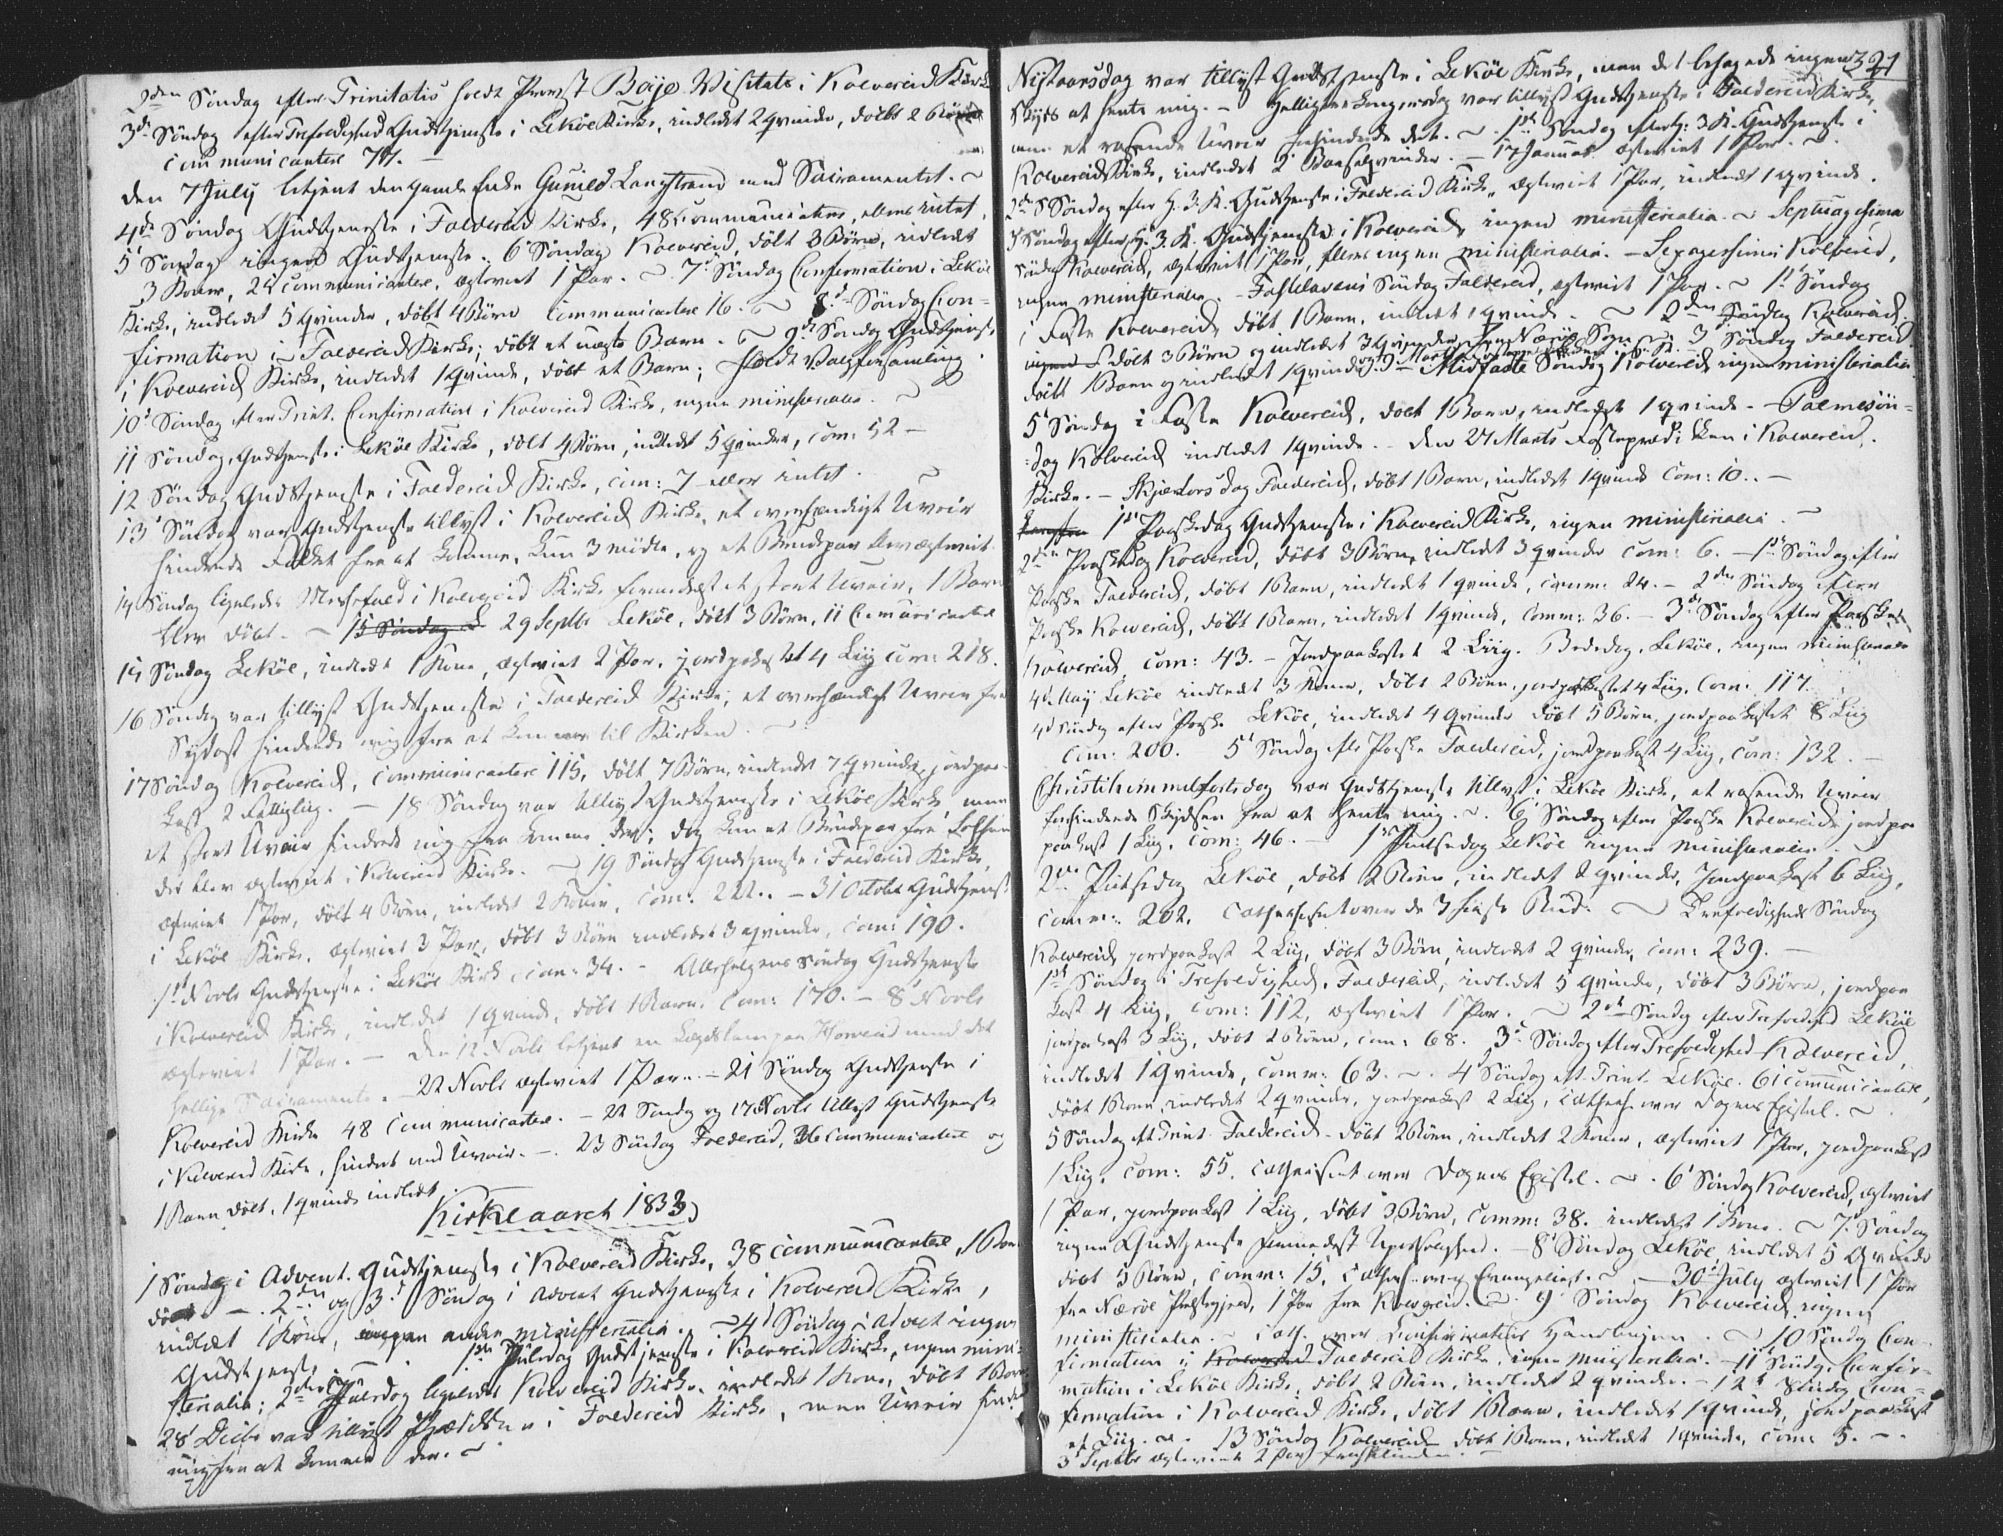 2den Söndag efter Trinitatis holdt Provst Böije Visitats i Kolvereid Kirke
3die Söndag efter Trefoldighed Gudstjeneste i Leköe Kirke, indledt 2 qvinder, döbt 2 Börn
communicantere 77. —
den 7 July betjent den gamle Enke Gunild Langstrand med Sacramentet. ~
4de Söndag Gudstjeneste i Foldereid Kirke, 48 Communicantere, ellers intet.
5 Söndag ingen Gudstjeneste. 6 Söndag Kolvereid, döbt 3 Börn, indledt
3 Koner, 24 communicantere, ægteviet 1 Par. ~ 7de Söndag Confirmation i Leköe
Kirke, indledt 5 qvinder, döbt 4 Börn communicantere 16. ~ 8de Söndag Con-
firmation i Foldereid Kirke; döbt et uægte Barn. ~ 9de Söndag Gudstjeneste
i Kolvereid Kirke, indledt 1 qvinde, döbt et Barn; holdt Valgforsamling.
10de Söndag efter Trint. Confirmation i Kolvereid Kirke, ingen ministerialia. ~
11 Söndag, Gudstjeneste i Leköe Kirke, döbt 4 Börn, indledt 5 qvinder, Com: 52 —
12 Söndag Gudstjeneste i Foldereid Kirke, com: 7 eller intet. ~
13 Söndag var Gudstjeneste tillyst i Kolvereid Kirke, et overhændigt Uveir
hindrede Folket fra at komme, kun 3 mödte, og et Brudepar blev ægteviet.
14 Söndag ligeledes Messefald i Kolvereid Kirke formedelst et stort Uveir, 1 Barn
blev döbt. — 15 Söndag L 29 Septbr Leköe, döbt 3 Börn, 11 Communicantere
15 Söndag Leköe, indledt 1 Kone, ægteviet 2 Par, jordpaakastet 4 Liig com: 218.
16 Söndag var tillyst Gudstjeneste i Foldereid Kirke; et overhændigt Uveir fra
Sydost hindrede mig fra at komme til Kirken. ~
17 Söndag Kolvereid, Communicantere 115, döbt 7 Börn, indledt 7 qvinder, jordpaa-
kast 2 Fattiglig. — 18 Söndag var tillyst Gudstjeneste i Leköe Kirke men
et stort Uveir hindrede mig fra komme der; dog kom et Brudepar fra
der blev ægteviet i Kolvereid Kirke. ~ 19 Söndag Gudstjeneste i Foldereid Kirke,
ægteviet 1 Par, döbt 4 Börn, indledt 2 Koner, com: 222. — 31 October Gudstjeneste
i Leköe Kirke, ægteviet 3 Par, döbt 3 Börn indledt 3 qvinder, com: 190.
1st Novbr Gudstjeneste i Leköe Kirke com: 34. — Allehelgens söndag Gudstjeneste
i Kolvereid Kirke, indledt 1 qvinde, döbt 1 Barn. Com: 170. — 8 Novbr
ægteviet 1 Par. — Den 12 Novbr betjent en paa med det
hellige Sacramente. — 22 Novbr ægteviet 1 Par. — 21 Söndag Gudstjeneste i
Kolvereid Kirke 48 Communicantere. — 22 Söndag og 17 Novbr tillyst Gudstjeneste
i Kolvereid Kirke, hindret ved Uveir. —. 23 Söndag Foldereid, 36 Communicantere og
1 Barn döbt, 1 qvinde indledt.
Kirkeaaret 1833
1 Söndag i Advent. Gudstjeneste i Kolvereid Kirke, 38 communicantere 1 Barn
döbt —. 2den og 3de Söndag i Advent Gudstjeneste i Kolvereid Kirke,
indledt 1 Kone, ingen andre ministerialia. ~ 4de Söndag i Advent ingen
Gudstjeneste — 1ste Juledag Gudstjeneste i Kolvereid Kirke, ingen mini-
sterialia; 2den Juledag ligeledes Kolvereid Kirke, indledt 1 Kone, döbt 1 Barn.
28 Decbr var tillyst Prædiken i Foldereid Kirke, men Uveir hindrede
mig fra at komme der. ~
321
Nyetaarsdag var tillyst Gudstjeneste i Leköe Kirke, men det behagede ingen
skyds at hente mig. — Hellige 3 kongersdag var tillyst Gudstjeneste i Foldereid Kirke,
men et rasende Uveir forhindrede det. ~. 1ste Söndag efter H: 3 K. Gudstjeneste i
Kolvereid Kirke, indledt 2 Barselqvinder. — 17 Januar ægteviet 1 Par. ~.
2de Söndag efter H. 3. K. Gudstjeneste i Foldereid Kirke, ægteviet 1 Par, indledt 1 qvinde.
3 Söndag efter H. 3. K. Gudstjeneste i Kolvereid ingen ministerialia. ~ Septuagesima
söndag Kolvereid, ægteviet 1 Par, ellers ingen ministerialia. — Sexagesima Kolvereid,
ingen ministerialia. — Fastelavens Söndag Foldereid, ægteviet 1 Par. ~ 1ste Söndag
i Faste Kolvereid, döbt 1 Barn, indledt 1 qvinde. ~ 2den Söndag Kolvereid.
döbt 3 Börn og indledt 3 qvinder fra Næröe Sogn. 3 Söndag Foldereid
döbt 1 Barn og indledt 1 qvinde Midfaste Söndag Kolvereid ingen ministerialia.
5 Söndag i Faste Kolvereid, döbt 1 Barn, indledt 1 qvinde. — Palmesön-
dag Kolvereid indledt 1 qvinde. — den 27 Marts Fasteprædiken i Kolvereid
Kirke. — Skjærtorsdag Foldereid, döbt 1 Barn, indledt 1 qvinde Com: 10. —
1ste Paaskedag Gudstjeneste i Kolvereid Kirke, ingen ministerialia. —
2den Paaskedag Kolvereid, döbt 3 Börn, indledt 3 qvinder com: 6. — 1ste Söndag efter
Paaske Foldereid, döbt 1 Barn, indledt 1 qvinde, comm: 24. — 2den Söndag efter
Paaske Kolvereid, döbt 1 Barn, indledt 1 qvinde, comm: 36. — 3de Söndag efter Paaske
Kolvereid Com: 43. — Jordpaakastet 2 Liig. Bededag, Leköe, ingen ministerialia
4de May Leköe indledt 3 Koner, döbt 2 Börn, jordpaakastet 4 Liig, Com: 117.
4de Söndag efter Paaske Leköe, indledt 4 qvinder döbt 5 Börn, jordpaakastet 8 Liig
Com: 200. 5 Söndag efter Paaske Foldereid, jordpaakast 4 Liig, Com: 132. —
Christi himmelfartsdag var Gudstjeneste tillyst i Leköe Kirke, et rasende Uveir
forhindrede Skydsen fra at hente mig. ~. 6 Söndag efter Paaske Kolvereid jordpaa
paakast 1 Liig, com: 46. — 1ste Pintsedag Leköe ingen ministerialia. ~
2den Pintsedag Leköe, döbt 2 Börn, indledt 2 qvinder, jordpaakast 6 Liig,
comm: 202. Catechiseret over de 3 sidste Bud. ~ Trefoldigheds Söndag
Kolvereid jordpaakast 2 Liig, döbt 3 Börn, indledt 2 qvinder, com: 239. —
1ste Söndag i Trefoldighed. Foldereid, indledt 5 qvinder, döbt 3 Börn, jordpaa
kast 4 Liig, Com: 112, ægteviet 1 Par. ~ 2den Söndag efter Trefoldighed Leköe
jordpaakast 3 Liig, döbt 2 Börn, com: 68. 3de Söndag efter Trefoldighed Kolvereid,
indledt 1 qvinde, comm: 63. ~. 4 Söndag eft. Trint. Leköe. 61 communicantere,
döbt 1 Barn, indledt 2 qvinder, jordpaakast 2 Liig, catech. over dagens Epistel. ~
5 Söndag eft Trint. Foldereid. döbt 2 Börn, indledt 2 Koner, ægteviet 1 Par, jordpaakast
1 Liig. Com: 55. catechiseret over dagens Epistel. ~. 6 Söndag Kolvereid, ægteviet
1 Par, jordpaakast 1 Liig, döbt 3 Börn, Comm: 38. indledt 1 Kone. ~ 7. Söndag
ingen Gudstjeneste formedelst Upasselighed. — 8 Söndag Leköe indledt 5 qvinder
döbt 5 Börn, comm: 15, catech. over Evangeliet. ~. — 30 July ægteviet 1 Par
fra Næröe Præstegjeld, 1 Par fra Kolvereid. ~. 9 Söndag Kolvereid, ingen
ministerialia. ~ cath. over Confirmations Handlingen. ~ 10 Söndag Con-
firmation i Kolvereid Foldereid Kirke, ingen ministerialia. — 11 Söndag. Confir-
mation i Leköe Kirke, döbt 2 Börn, indledt 2 qvinder. — 12 Söndag Con-
firmation i Kolvereid Kirke, döbt 1 Barn, indledt 1 qvinde, jordpaakast
et Liig. ~. 13 Söndag Kolvereid döbt 1 Barn, indledt 1 qvinde, Com: 5. —.
3 Septbr ægteviet 2 Par